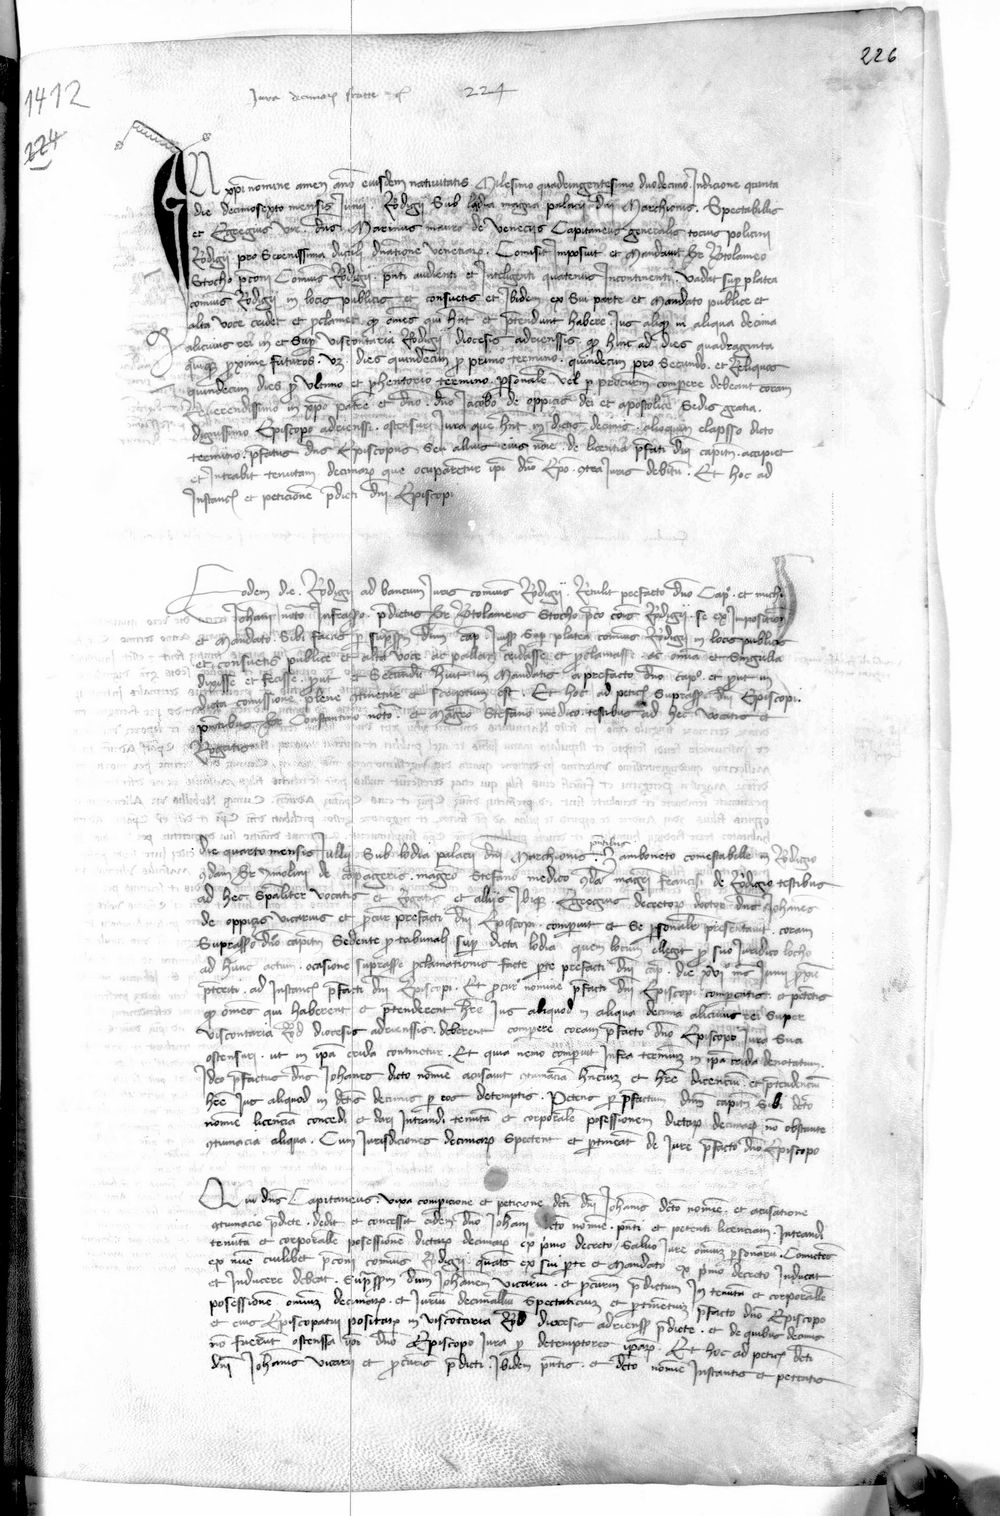 226
1412
224
Jura decimar fratte
224
In xpi nomine amen anno eiusdem nativitatis Milesimo quadringentesimo duodecimo Indicione quinta
die decimosexto mensis Junij. Rodigij Sub lodia magna palacij dni Marchionis. Spectabilis
et Egregius Vir dns Marinus de Venecijs Capitaneus generalis tocius policini
Rodigij pro Serenissima ducali dnatione Venetiar. Comisit imposuit et Mandavit Br Btolameo
Stocho pconi Comunis Rodigij. pnti audienti et Inteligenti quatenus Incontinenti Vadat sup platea
comunis Rodigij in locis publicis et consuetis et Ibidem ex Sui parte et Mandato publice et
alta voce cridet et pclamet qd omes qui hnt et ptendunt habere Jus aliqd in aliqua decima
alicuius rei in et Sup viscontaria Rodigij diocesis adriensis qd hinc ad dies quadraginta
quinq proxime futuros. vz. dies quindecim p primo termino. quindecim pro Secundo. et Reliquos
quindecim dies p Ultimo et phentorio termino. psonalr vel p procurem compere debeant coram
Reverendissimo in xpo patre et dno. dno Jacobo de oppicis dei et apostolice Sedis gratia.
dignissimo Episcopo adriensi. ostensuri Jura que hnt in dictis decimis. alioquin elapsso dicto
termino. pfatus dns Episcopus Seu alius eius noie. de licentia pfati dni capitn. accipiet
et Intrabit tenutam decimar que ocuparetur ipi dno Epo. contra Juris debitu. Et hoc ad
Instanc et peticione pdicti dni Episcopi
Eodem die. Rodigij ad bancum Juris comunis Rodigij. Retulit prefacto dno Capo. et mich
Johani noto Infrasso. pdictus Br Btolameus Stocho pco cois Rodigij. se ex Impositione
et Mandato Sibi factis p supsm dnm cap. Iuisse Sup platea comunis Rodigij in locis publicis
et consuetis publice et alta voce ac pallam cridasse et pclamasse ac omia et Singulla
dixisse et fecisse. put et Secundu hnit in Mandatis a prefacto dno capo. et put in
dicta comissione plene continetur et Sceptum est. Et hoc ad petic suprasse dni Episcopi.
pntibus Constantino noto. et Magro Stefano medico. testibus ad hec vocatis et
Rogatis
pntibus
die quarto mensis Jullij Sub lodia palacij dni Marchionis. Jamboneto comestabelle in Rodigio
condam Br de magro Stefano medico codam magri Francisi de Rodigio testibus
ad hec Spaliter vocatis et Rogatis et alijs. Ibiq Egregius decretor doctor dns Johanes
de oppizis vicarius et pcur prefacti dni Episcopi. compuit et Se psonalr presentavit. coram
Suprasso dno capitn Sedente p tribunali sup dicta lodia quem locum ellegit p suo Juridico locho
ad hunc actum. ocasione suprasse pclamationis facte pte prefacti dni cap. die xvi mis Junij pxie
ptteriti. ad Instanc pfacti dni Episcopi. Et pcur nomine pfacti dni Episcopi comperentis. et petentis
qd omes qui haberent et ptenderent hre Jus aliquod in aliqua decima alicuius rei Super
viscontaria Rod diocesis adrienssis. deberent compere coram pfacto dno Episcopo Jura Sua
ostensuri. ut in ipa crida continetur. Et quia nemo compuit Infra terminum in ipa crida denotatum.
Ideo pfactus dns Johanes dicto nomine acusavit contumacia hncium et hre dicencium. et ptendencium
hre Jus aliquod in dctis decimis p eos detemptis. Petens p pfactum dnm capitn Sibi dcto
nomine licencia concedi et dari Intrandi tenuta et corporale posessionem dictar decimar no obstante
contumacia aliqua. Cum Jurisdiciones decimar Spectent et ptineat de Jure pfacto dno Episcopo
Qui dns Capitaneus. visa compicione et peticione dcti dni Johanis dcto nomine. et acusatione
contumacie pdicte. dedit et concessit eidem dno Johani dcto nomine. pnti et petenti licenciam. Intrandi
tenuta et corporalle posessione dictar decimar ex pimo decreto. Salvo Jure omium psonaru. Comictens
ex nuc cuilibet pconi comunis Rodigij. quatus ex Sui pte et Mandato. ex pmo decreto Inducat
et Inducere debeat. Supssm dnm Johanem vicariu. et pcurem pdictum In tenuta et corporalle
posessione. omium decimar. et Jurium decimalliu Spectanciu et ptinetium pfacto dno Episcopo
et eius Episcopatui positar in viscotaria Rod diocesis adrienssis pdicte. et de quibus decimis
no fuerut ostenssa ipi dno Episcopo Jura p detemptores ipar. Et hoc ad petic dcti
dni Johanis vicarij et pcuris pdicti. Ibidem pntis. et dcto nomine Instantis et petentis